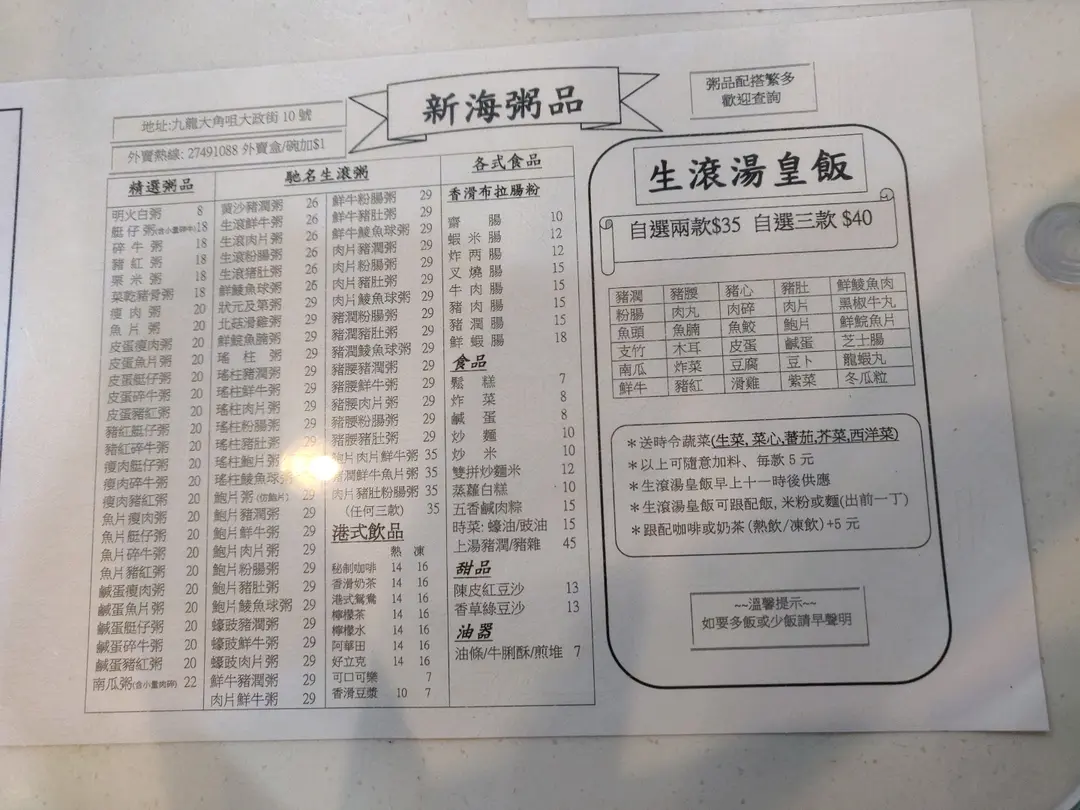 新海粥品
粥品配搭繁多
歡迎查詢
地址:九龍大角咀大政街 10 號
外賣熱線: 27491088 外賣盒/碗加$1
精選粥品
明火白粥 8
艇仔粥(含小量碎牛) 18
碎牛粥 18
豬紅粥 18
粟米粥 18
菜乾豬骨粥 18
瘦肉粥 20
魚片粥 20
皮蛋瘦肉粥 20
皮蛋魚片粥 20
皮蛋艇仔粥 20
皮蛋碎牛粥 20
皮蛋豬紅粥 20
豬紅艇仔粥 20
豬紅碎牛粥 20
瘦肉艇仔粥 20
瘦肉碎牛粥 20
瘦肉豬紅粥 20
魚片瘦肉粥 20
魚片艇仔粥 20
魚片碎牛粥 20
魚片豬紅粥 20
鹹蛋瘦肉粥 20
鹹蛋魚片粥 20
鹹蛋艇仔粥 20
鹹蛋碎牛粥 20
鹹蛋豬紅粥 20
南瓜粥(含小量肉碎) 22
馳名生滾粥
黄沙豬潤粥 26
生滾鮮牛粥 26
生滾肉片粥 26
生滾粉腸粥 26
生滾豬肚粥 26
鮮鯪魚球粥 26
狀元及第粥 29
北菇滑雞粥 29
鮮鯇魚腩粥 29
瑤柱粥 29
瑤柱豬潤粥 29
瑤柱鮮牛粥 29
瑤柱肉片粥 29
瑤柱粉腸粥 29
瑤柱豬肚粥 29
瑤柱鮑片粥
瑤柱鯪魚球
鮑片粥(仿鮑片) 29
鮑片豬潤粥 29
鮑片鮮牛粥 29
鮑片肉片粥 29
鮑片粉腸粥 29
鮑片豬肚粥 29
鮑片鯪魚球粥 29
蠔豉豬潤粥 29
蠔豉鮮牛粥 29
蠔豉肉片粥 29
鮮牛豬潤粥 29
肉片鮮牛粥 29
鮮牛粉腸粥 29
鮮牛豬肚粥 29
鮮牛鯪魚球粥 29
肉片豬潤粥 29
肉片粉腸粥 29
肉片豬肚粥 29
肉片鯪魚球粥 29
豬潤粉腸粥 29
豬潤豬肚粥 29
豬潤鯪魚球粥 29
豬腰豬潤粥 29
豬腰鮮牛粥 29
豬腰肉片粥 29
豬腰粉腸粥 29
豬腰豬肚粥 29
鮑片肉片鮮牛粥 35
豬潤鮮牛魚片粥 35
肉片豬肚粉腸粥 35
(任何三款) 35
港式飲品
熱 凍
秘制咖啡 14 16
香滑奶茶 14 16
港式鴛鴦 14 16
檸檬茶 14 16
檸檬水 14 16
阿華田 14 16
好立克 14 16
可口可樂 7
香滑豆漿 10 7
各式食品
香滑布拉腸粉
齋腸 10
蝦米腸 12
炸两腸 12
叉燒腸 15
牛肉腸 15
豬肉腸 15
豬潤腸 15
鮮蝦腸 18
食品
鬆糕 7
炸菜 8
鹹蛋 8
炒麵 10
炒米 10
雙拼炒麵米 12
蒸蘿白糕 10
五香鹹肉粽 15
時菜: 蠔油/豉油 15
上湯豬潤/豬雜 45
甜品
陳皮紅豆沙 13
香草綠豆沙 13
油器
油條/牛脷酥/煎堆 7
生滾湯皇飯
自選兩款$35 自選三款 $40
豬潤 豬腰 豬心 豬肚 鮮鯪魚肉
粉腸 肉丸 肉碎 肉片 黑椒牛丸
魚頭 魚腩 魚鮫 鮑片 鮮鯇魚片
支竹 木耳 皮蛋 鹹蛋 芝士腸
南瓜 炸菜 豆腐 豆卜 龍蝦丸
鮮牛 豬紅 滑雞 紫菜 冬瓜粒
*送時令蔬菜(生菜, 菜心,蕃茄,芥菜,西洋菜)
*以上可隨意加料、每款 5 元
*生滾湯皇飯早上十一時後供應
*生滾湯皇飯可跟配飯, 米粉或麵(出前一丁)
*跟配咖啡或奶茶 (熱飲/凍飲)+5 元
~~溫馨提示~~
如要多飯或少飯請早聲明